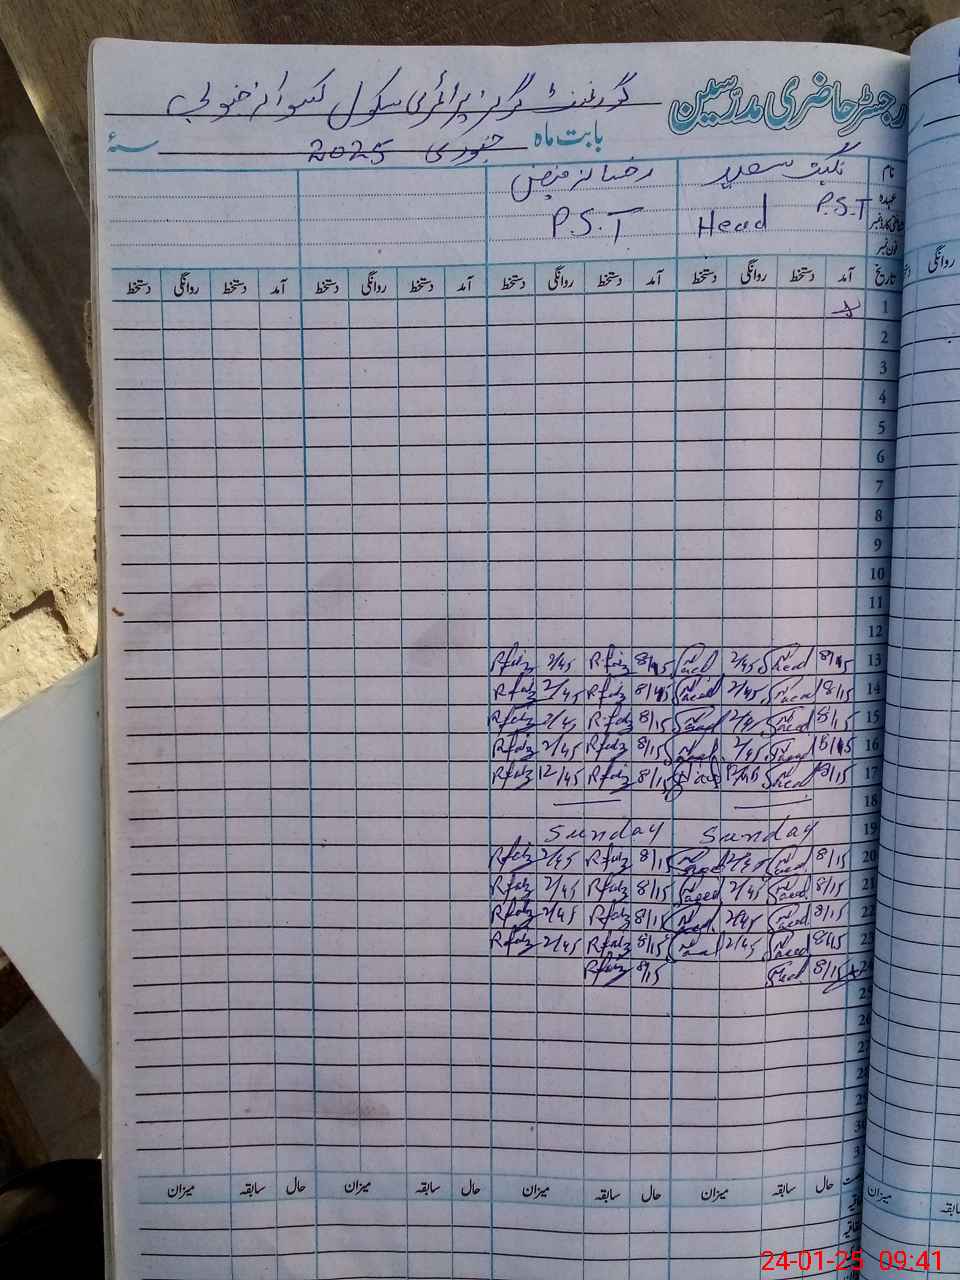 رجسٹر حاضری مدرسین گورنمنٹ گرلز پرائمری سکول
بابت ماہ جنوری 2025 سنہ
نام نگہت سعید رخسانہ فیض
عہدہ P.S.T
Head P.S.T
فون نمبر
تاریخ آمد دستخط روانگی دستخط آمد دستخط روانگی دستخط آمد دستخط روانگی دستخط آمد دستخط روانگی دستخط
1
2
3
4
5
6
7
8
9
10
11
12
13 8/15 Saeed 2/45 Saeed 8/15 Rfaiz 2/45 Rfaiz
14 8/15 Saeed 2/45 Saeed 8/15 Rfaiz 2/45 Rfaiz
15 8/15 Saeed 2/45 Saeed 8/15 Rfaiz 2/45 Rfaiz
16 8/15 Saeed 2/45 Saeed 8/15 Rfaiz 2/45 Rfaiz
17 8/15 Saeed 8/15 Rfaiz 12/45 Rfaiz
18
19 Sunday Sunday
20 8/15 Saeed 2/45 Saeed 8/15 Rfaiz 2/45 Rfaiz
21 8/15 Saeed 2/45 Saeed 8/15 Rfaiz 2/45 Rfaiz
22 8/15 Saeed 2/45 Saeed 8/15 Rfaiz 2/45 Rfaiz
23 8/15 Saeed 2/45 Saeed 8/15 Rfaiz 2/45 Rfaiz
24 8/15 Saeed 8/15 Rfaiz
25
26
27
28
29
30
حال سابقہ میزان حال سابقہ میزان حال سابقہ میزان حال سابقہ میزان
24-01-25 09:41